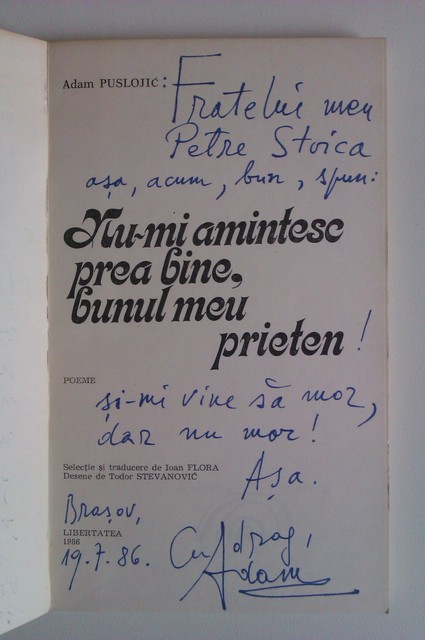 Adam PUSLOJIĆ:
Fratelui meu
Petre Stoica
așa, acum, bun, spun:
Nu-mi amintesc
prea bine,
bunul meu
prieten!
POEME
și-mi vine să mor,
dar nu mor!
Selecție și traducere de Ioan FLORA
Desene de Todor STEVANOVIĆ
Așa.
Brașov,
LIBERTATEA
1986
19.7.86.
Cu drag,
Adam